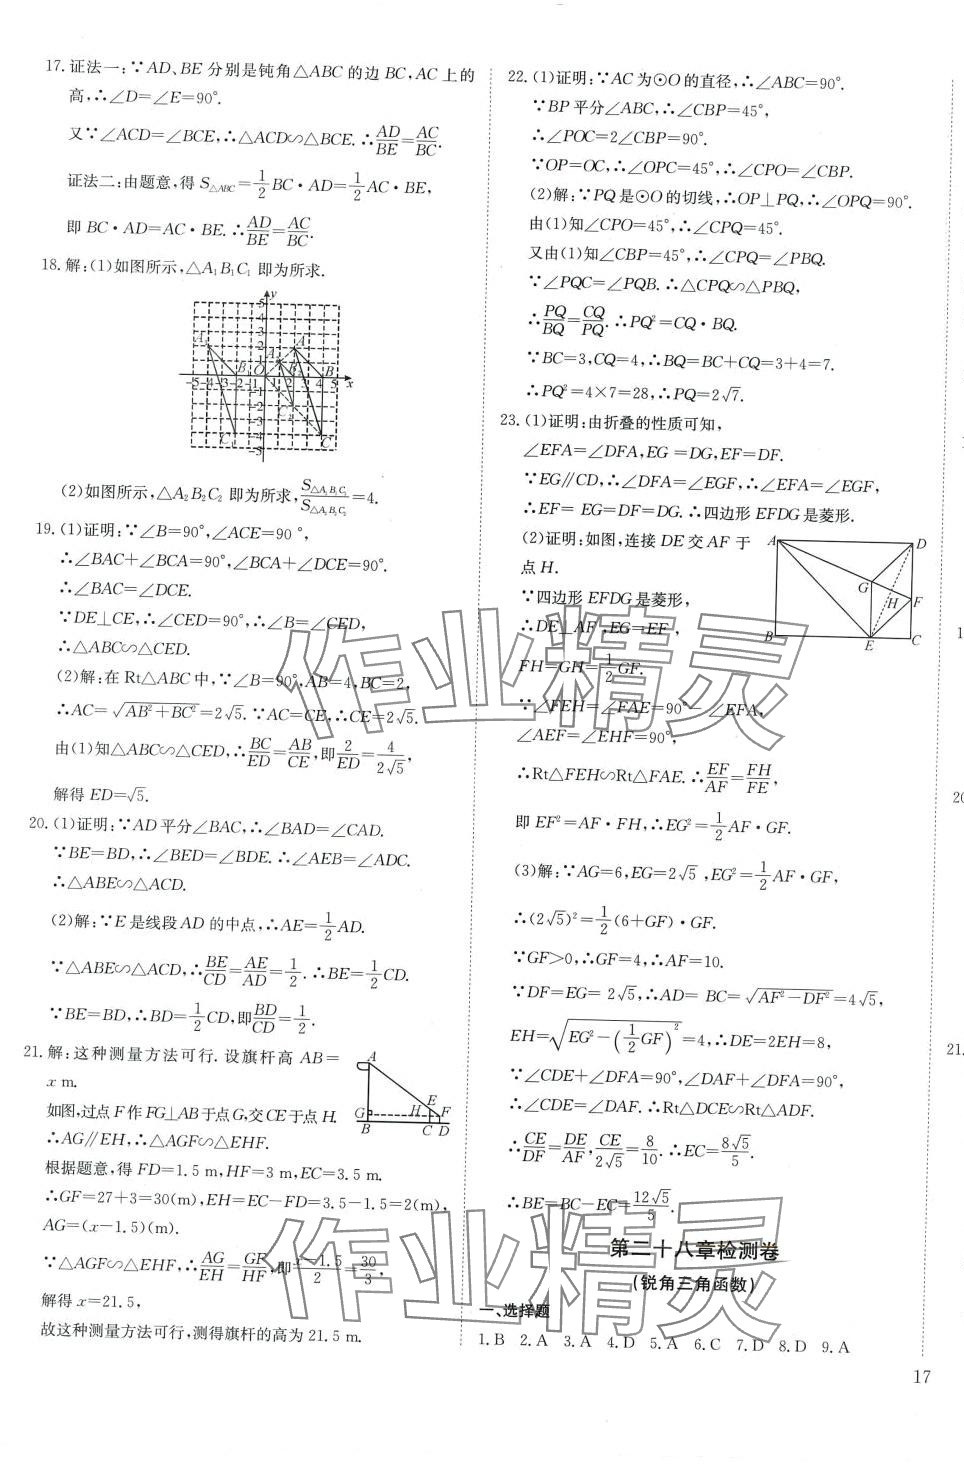 17. 证法一:∵AD、BE 分别是钝角△ABC 的边 BC,AC 上的
高,∴∠D=∠E=90°.
又∵∠ACD=∠BCE,∴△ACD∽△BCE. ∴AD/BE=AC/BC.
证法二:由题意,得 S△ABC=1/2BC·AD=1/2AC·BE,
即 BC·AD=AC·BE. ∴AD/BE=AC/BC.
18. 解:(1)如图所示,△A₁B₁C₁ 即为所求.
(2)如图所示,△A₂B₂C₂ 即为所求,S△A₁B₁C₁/S△A₂B₂C₂=4.
19. (1)证明:∵∠B=90°,∠ACE=90°,
∴∠BAC+∠BCA=90°,∠BCA+∠DCE=90°.
∴∠BAC=∠DCE.
∵DE⊥CE,∴∠CED=90°,∴∠B=∠CED,
∴△ABC∽△CED.
(2)解:在 Rt△ABC 中,∵∠B=90°,AB=4,BC=2,
∴AC=√(AB²+BC²)=2√5. ∵AC=CE,∴CE=2√5.
由(1)知△ABC∽△CED,∴BC/ED=AB/CE,即2/ED=4/(2√5),
解得 ED=√5.
20. (1)证明:∵AD 平分∠BAC,∴∠BAD=∠CAD.
∵BE=BD,∴∠BED=∠BDE. ∴∠AEB=∠ADC.
∴△ABE∽△ACD.
(2)解:∵E 是线段 AD 的中点,∴AE=1/2AD.
∵△ABE∽△ACD,∴BE/CD=AE/AD=1/2. ∴BE=1/2CD.
∵BE=BD,∴BD=1/2CD,即BD/CD=1/2.
21. 解:这种测量方法可行. 设旗杆高 AB=
x m.
如图,过点 F 作 FG⊥AB 于点 G,交 CE 于点 H.
∴AG∥EH,∴△AGF∽△EHF.
根据题意,得 FD=1.5 m,HF=3 m,EC=3.5 m.
∴GF=27+3=30(m),EH=EC-FD=3.5-1.5=2(m),
AG=(x-1.5)(m).
∵△AGF∽△EHF,∴AG/EH=GF/HF,即(x-1.5)/2=30/3,
解得 x=21.5,
故这种测量方法可行,测得旗杆的高为 21.5 m.
22. (1)证明:∵AC 为⊙O 的直径,∴∠ABC=90°.
∵BP 平分∠ABC,∴∠CBP=45°,
∴∠POC=2∠CBP=90°.
∵OP=OC,∴∠OPC=45°,∴∠CPO=∠CBP.
(2)解:∵PQ 是⊙O 的切线,∴OP⊥PQ,∴∠OPQ=90°.
由(1)知∠CPO=45°,∴∠CPQ=45°.
又由(1)知∠CBP=45°,∴∠CPQ=∠PBQ.
∵∠PQC=∠PQB. ∴△CPQ∽△PBQ,
∴PQ/BQ=CQ/PQ. ∴PQ²=CQ·BQ.
∵BC=3,CQ=4,∴BQ=BC+CQ=3+4=7.
∴PQ²=4×7=28,∴PQ=2√7.
23. (1)证明:由折叠的性质可知,
∠EFA=∠DFA,EG=DG,EF=DF.
∵EG∥CD,∴∠DFA=∠EGF,∴∠EFA=∠EGF,
∴EF=EG=DF=DG. ∴四边形 EFDG 是菱形.
(2)证明:如图,连接 DE 交 AF 于
点 H.
∵四边形 EFDG 是菱形,
∴DE⊥AF,EG=EF,
FH=GH=1/2GF.
∵∠FEH=∠FAE=90°-∠EFA,
∠AEF=∠EHF=90°,
∴Rt△FEH∽Rt△FAE. ∴EF/AF=FH/FE,
即 EF²=AF·FH,∴EG²=1/2AF·GF.
(3)解:∵AG=6,EG=2√5,EG²=1/2AF·GF,
∴(2√5)²=1/2(6+GF)·GF.
∵GF>0,∴GF=4,∴AF=10.
∵DF=EG=2√5,∴AD=BC=√(AF²-DF²)=4√5,
EH=√(EG²-(1/2GF)²)=4,∴DE=2EH=8,
∵∠CDE+∠DFA=90°,∠DAF+∠DFA=90°,
∴∠CDE=∠DAF. ∴Rt△DCE∽Rt△ADF.
∴CE/DF=DE/AF,CE/(2√5)=8/10. ∴EC=8√5/5.
∴BE=BC-EC=12√5/5.
第二十八章检测卷
(锐角三角函数)
一、选择题
1. B 2. A 3. A 4. D 5. A 6. C 7. D 8. D 9. A
17
作业精灵
作业精灵